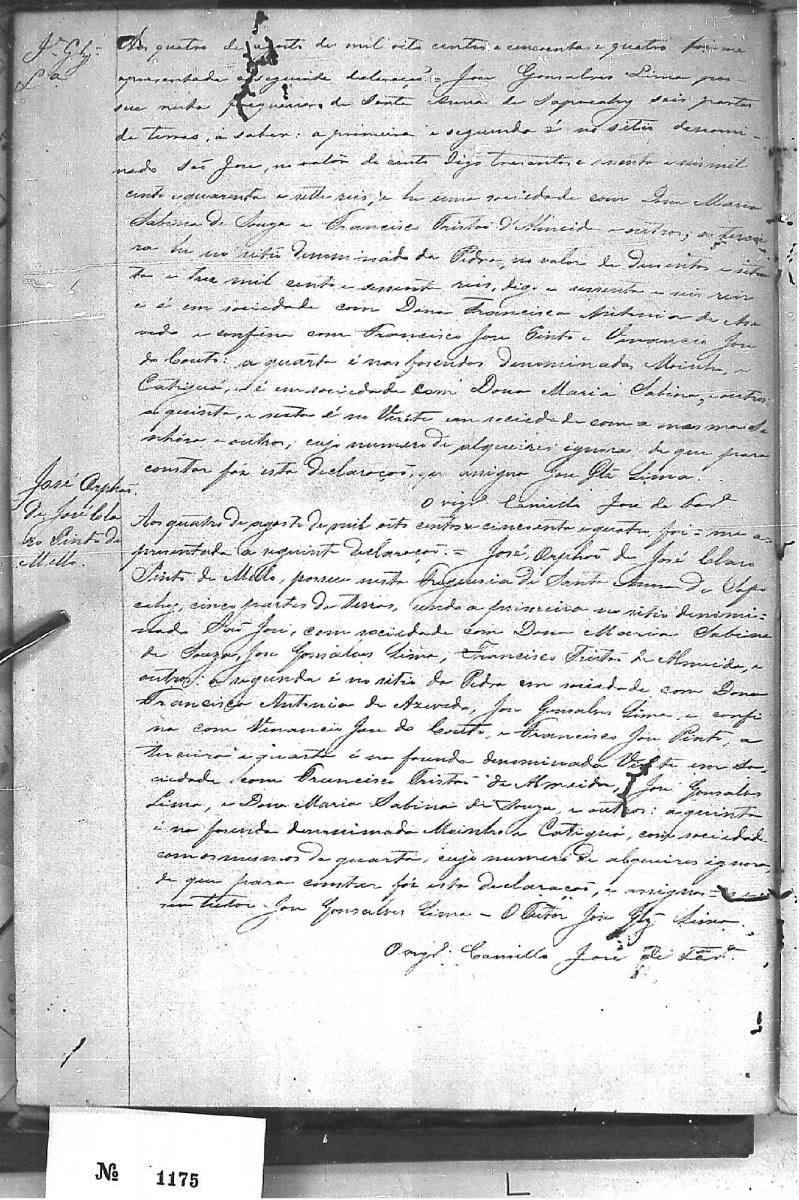 Jᵉ Glz
Lᵃ
Aos quatro de agosto de mil oito centos e cincoenta e quatro foi-me
apresentada a seguinte declaração = Jose Gonsalves Lima pos-
sue nesta freguesia de Santa Anna de Sapucahy seis partes
de terras, a saber: a primeira e segunda é no sitio denomi-
nado São Jose, no valor de cento digo tresentos e secenta e seis mil
cento e quarenta e sette reis, e he uma sociedade com Dona Maria
Sabina de Souza e Francisco Tristão d'Almeid e outros; a tercei-
ra he no sitio denominado da Pedra, no valor de dusentos e seten-
ta e trez mil cento e sessenta reis, digo e sessenta e seis reis
e é em sociedade com Dona Francisca Antonia de Aze
vedo e confina com Francisco Jose Pinto e Venancio Jose
do Couto: a quarta é nas fasendas denominadas Moinho, e
Catiguá, e é em sociedade com Dona Maria Sabina, e outros:
a quinta, e sexta é no Virito em sociedade com a mesma Se
nhora e outros; cujo numero de alqueires ignora, de que para
constar fôz esta declaração, e assigna Jose Glz Lima.
O vigrº Camillo Jose de Farª
José Orphão
de José Cla
ro Pinto de
Mello.
Aos quatro de agosto de mil oito centos e cincoenta e quatro foi-me a-
presentada a seguinte declaração = José, Orphão de José Claro
Pinto de Mello, possue nesta Freguesia de Santa Anna de Sapu
cahy, cinco partes de terras, sendo a primeira no sitio denimi-
nado São José, com sociedade com Dona Maria Sabina
de Souza, Jose Gonsalves Lima, Francisco Tristão de Almeida, e
outros: a segunda é no sitio da Pedra em sociedade com Dona
Francisca Antonia de Azevedo, Jose Gonsalves Lima, e confi
na com Venancio Jose do Couto, e Francisco Jose Pinto, a
terceira e quarta é na fasenda denominada Virito em so-
ciedade com Francisco Tristão de Almeida, Jose Gonsalves
Lima, e Dona Maria Sabina de Souza, e outros: a quinta
é na fasenda denominada Moinho e Catiguá, com sociedade
com os mesmos da quarta, cujo numero de alqueires ignora,
de que para constar fôz esta declaração, e assignou
seu tutor Jose Gonsalves Lima - O Tutor Jose Glz Lima
O vigrº Camillo José de Farª
Nº 1175